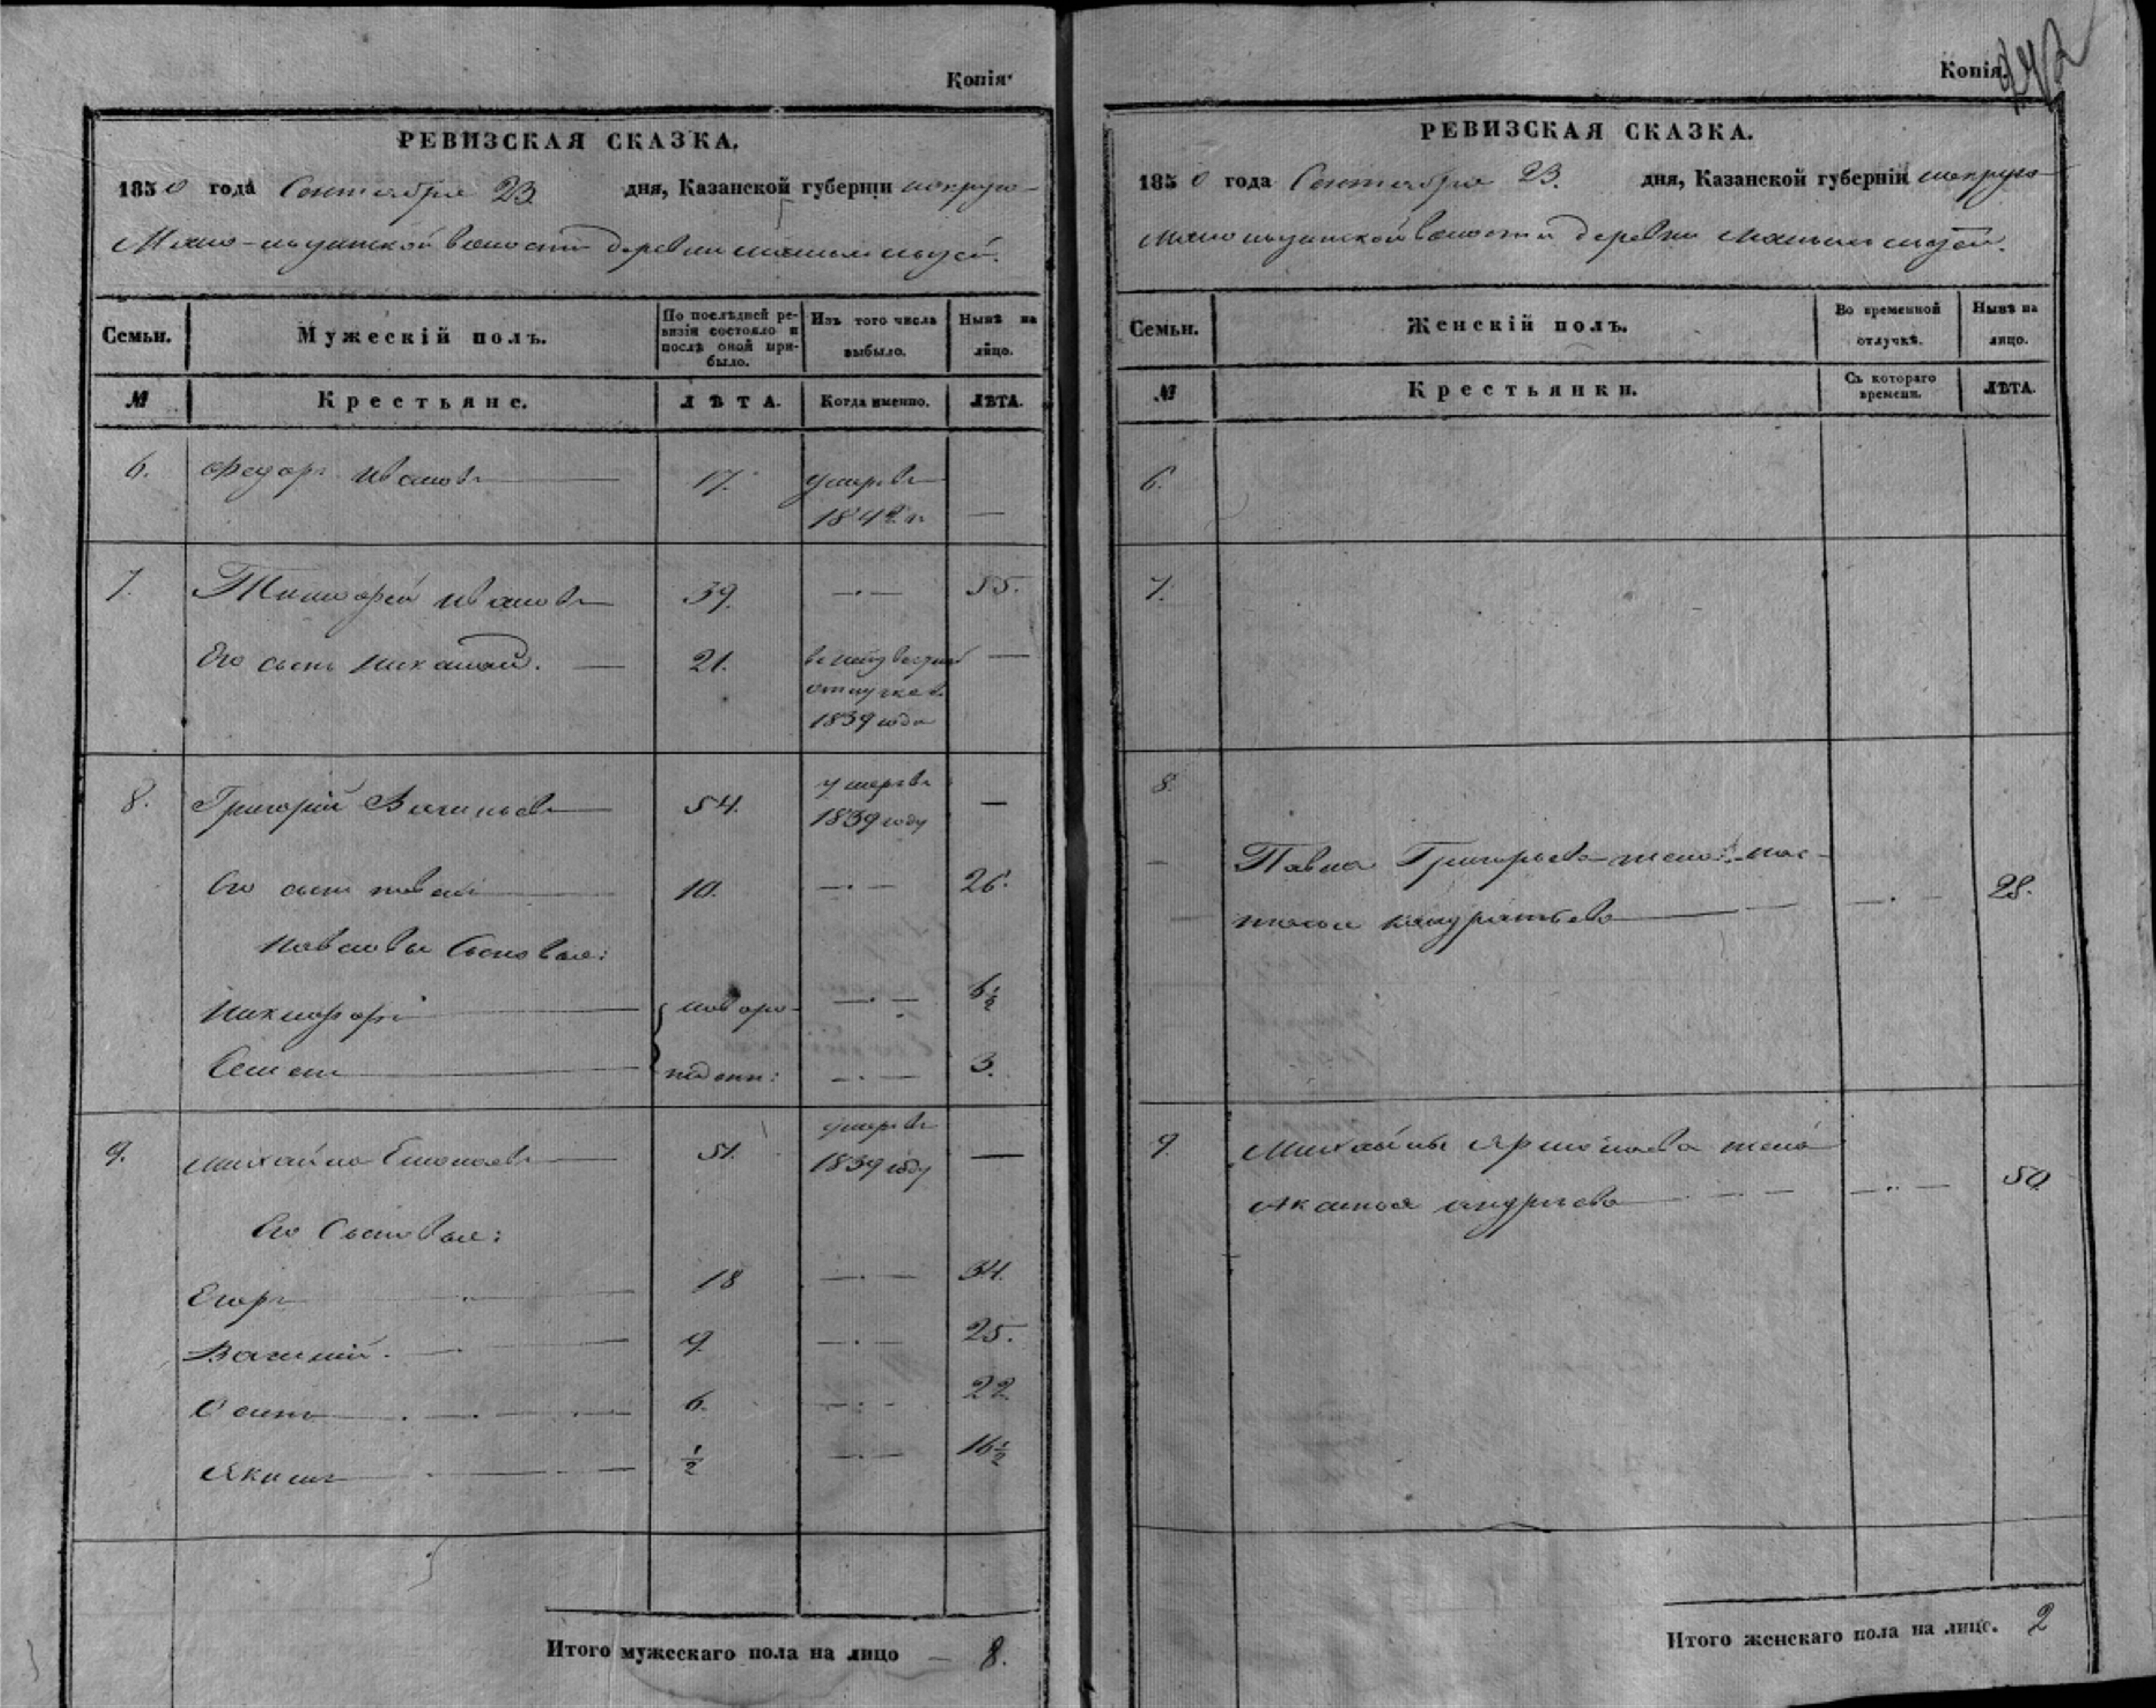 Копія
РЕВИЗСКАЯ СКАЗКА.
1850 года Сентября 23 дня, Казанской губерніи
волости деревни
Семьи. Мужескій полъ. По послѣдней ревизіи состояло и послѣ оной прибыло. Изъ того числа выбыло. Нынѣ на лицо.
№ Крестьяне. ЛѢТА. Когда именно. ЛѢТА.
6. Федоръ Ивановъ 17. умеръ въ
184 г. —
7. Тимофей Ивановъ 39. —·— 55.
Его сынъ Николай. — 21. въ неизвестной —
отлучке съ
1839 года
8. Григорій Васильевъ 54. умеръ въ
1839 году —
Его сынъ Павелъ 10. —·— 26.
Павловы сыновья:
Никифоръ новоро- —·— 6½
Семенъ жденн: —·— 3.
9. Михайло 51. умеръ въ
1839 году —
Его Сыновья:
Егоръ 18 —·— 34.
Василій. 9. —·— 25.
Осипъ 6. —·— 22.
Якимъ ½ —·— 16½
Итого мужескаго пола на лицо — 8.
Копія.
РЕВИЗСКАЯ СКАЗКА.
1850 года Сентября 23. дня, Казанской губерніи
волости деревни
Семьи. Женскій полъ. Во временной отлучкѣ. Нынѣ на лицо.
№ Крестьянки. Съ котораго времени. ЛѢТА.
6.
7.
8.
Павла Григорьева жена Нас-
тасья Кандратьева —·— 28.
9. Михайлы жена
Андреева —·— 50
Итого женскаго пола на лицо. 2